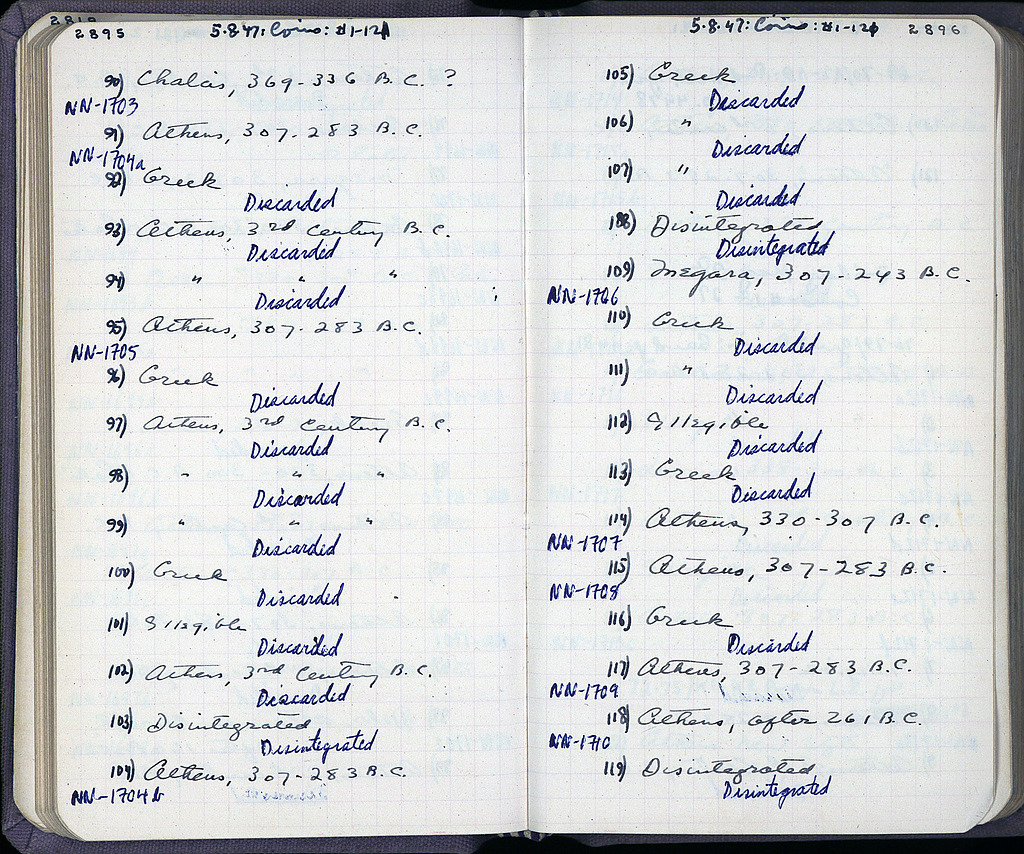 2819
2895
5·8·47: Coins: #1-121
90) Chalcis, 369-336 B.C.?
NN-1703
91) Athens, 307-283 B.C.
NN-1704a
92) Greek
Discarded
93) Athens, 3rd Century B.C.
Discarded
94) " " "
Discarded
95) Athens, 307-283 B.C.
NN-1705
96) Greek
Discarded
97) Athens, 3rd Century B.C.
Discarded
98) " " "
Discarded
99) " " "
Discarded
100) Greek
Discarded
101) Illegible
Discarded
102) Athens, 3rd Century B.C.
Discarded
103) Disintegrated
Disintegrated
104) Athens, 307-283 B.C.
NN-1704b
5·8·47: Coins: #1-121
2896
105) Greek
Discarded
106) "
Discarded
107) "
Discarded
108) Disintegrated
Disintegrated
109) Megara, 307-243 B.C.
NN-1706
110) Greek
Discarded
111) "
Discarded
112) Illegible
Discarded
113) Greek
Discarded
114) Athens, 330-307 B.C.
NN-1707
115) Athens, 307-283 B.C.
NN-1708
116) Greek
Discarded
117) Athens, 307-283 B.C.
NN-1709
118) Athens, after 261 B.C.
NN-1710
119) Disintegrated
Disintegrated